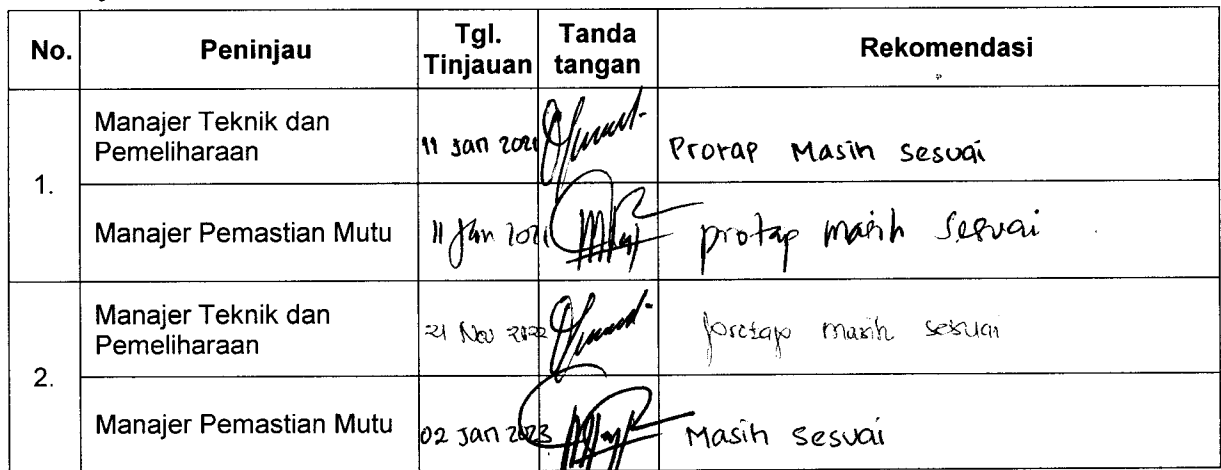 No. Peninjau Tgl. Tinjauan Tanda tangan Rekomendasi
1.
Manajer Teknik dan
Pemeliharaan 11 Jan 2021 Protap Masih sesuai
Manajer Pemastian Mutu 11 Jan 2021 protap masih sesuai
2.
Manajer Teknik dan
Pemeliharaan 21 Nov 2022 protap masih sesuai
Manajer Pemastian Mutu 02 Jan 2023 Masih sesuai